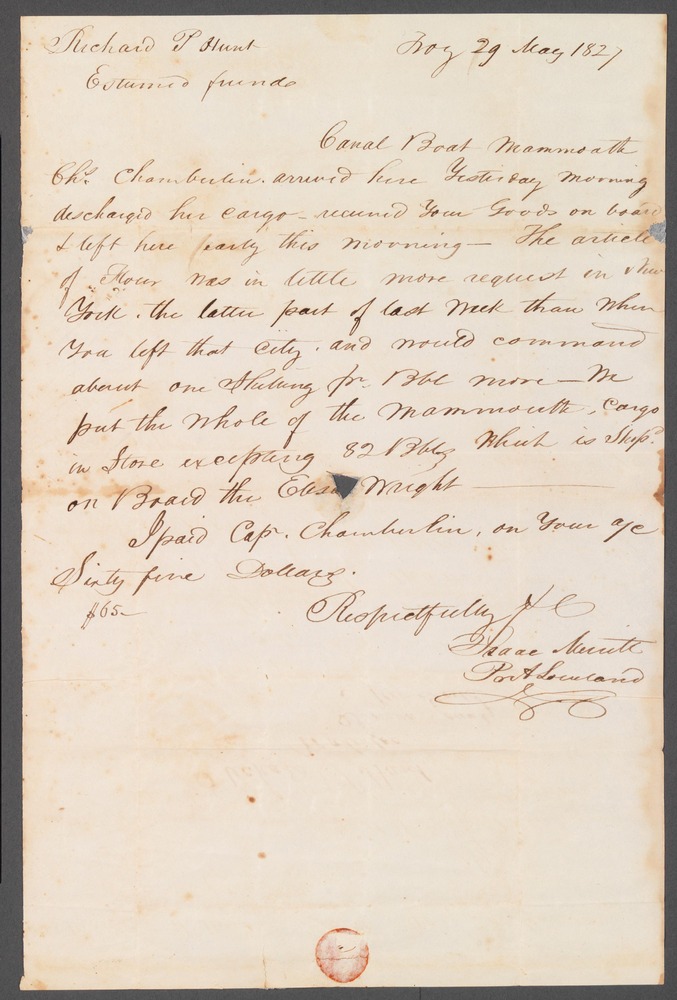 Richard P Hunt Troy 29 May 1827
Esteemed friend
Canal Boat Mammoath
Chs. Chamberlin. arrived here Yesterday morning
discharged her cargo - received Your Goods on board
& left here early this morning - The article
of Flour was in little more request in New
York. the latter part of last Week than When
You left that City. and would command
about one Shilling pr. Bbl more - We
put the Whole of the Mammouth, Cargo
in Store excepting 82 Bbls Which is Ship.
on Board the Eliza Wright
I paid Cap. Chamberlin, on Your a/c
Sixty five Dollars.
$65 -
Respectfully &C
Isaac Merritt
Pr A Lowland